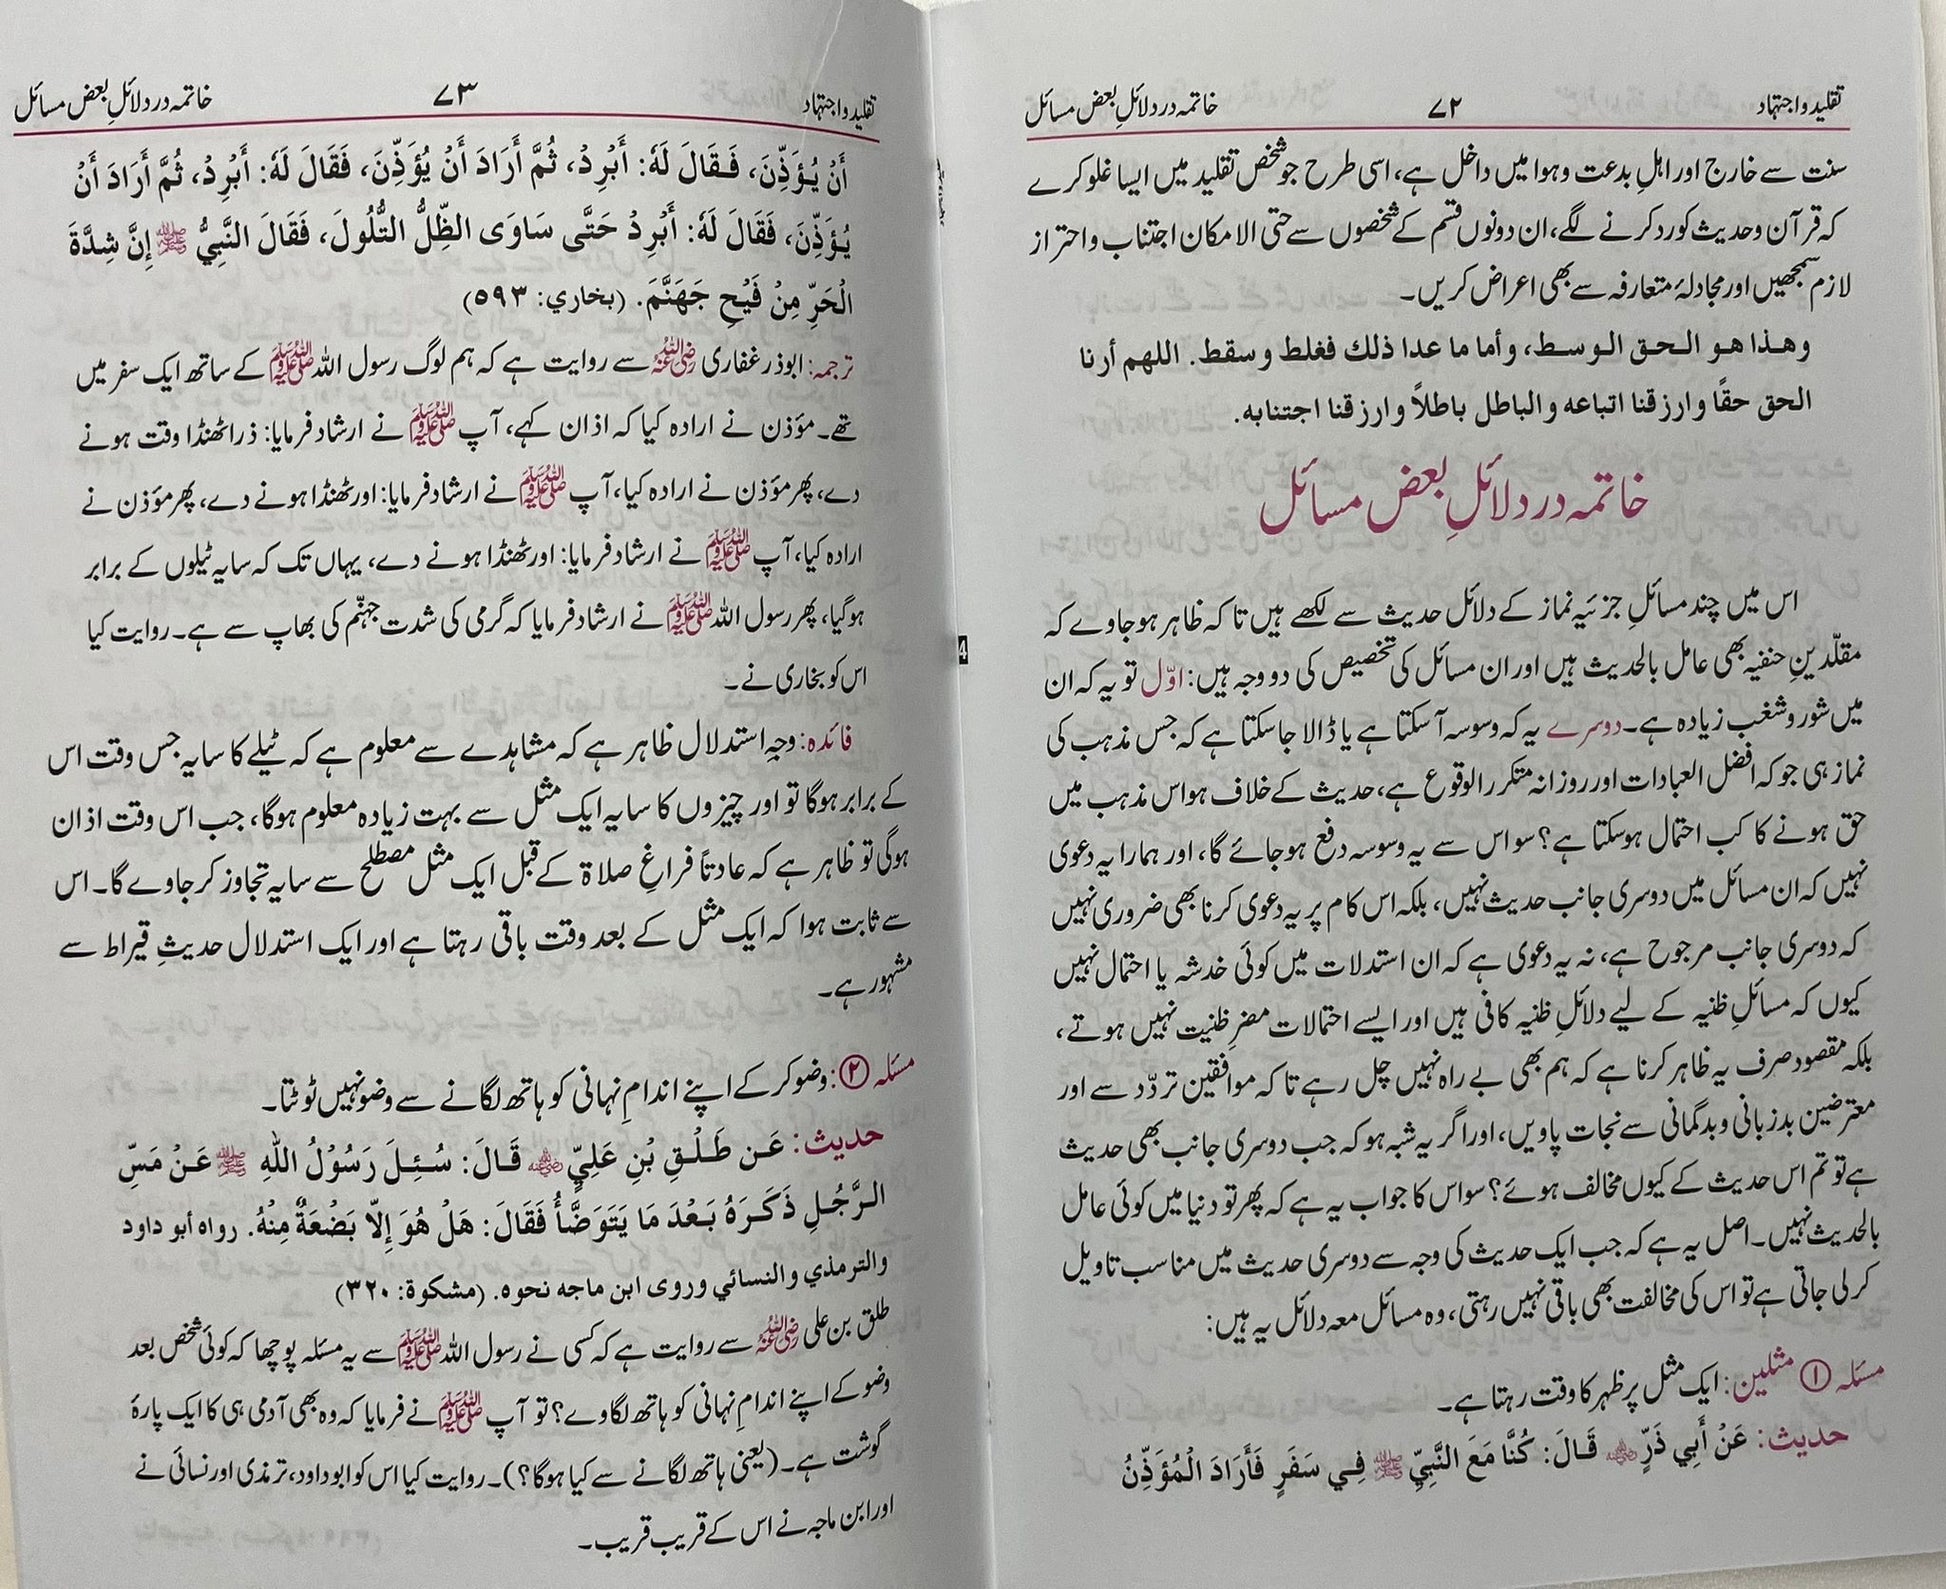 تقلید و اجتہاد ۷۲ خاتمہ در دلائلِ بعض مسائل
سنت سے خارج اور اہلِ بدعت و ہوا میں داخل ہے، اسی طرح جو شخص تقلید میں ایسا غلو کرے
کہ قرآن و حدیث کو رد کرنے لگے، ان دونوں قسم کے شخصوں سے حتی الامکان اجتناب و احتراز
لازم سمجھیں اور مجادلۂ متعارفہ سے بھی اعراض کریں۔
وهذا هو الحق الوسط، وأما ما عدا ذلك فغلط وسقط. اللهم أرنا
الحق حقًا وارزقنا اتباعه والباطل باطلاً وارزقنا اجتنابه.
خاتمہ در دلائلِ بعض مسائل
اس میں چند مسائلِ جزئیہ نماز کے دلائل حدیث سے لکھے ہیں تاکہ ظاہر ہوجاوے کہ
مقلّدینِ حنفیہ بھی عامل بالحدیث ہیں اور ان مسائل کی تخصیص کی دو وجہ ہیں: اوّل تو یہ کہ ان
میں شور و شغب زیادہ ہے۔ دوسرے یہ کہ وسوسہ آسکتا ہے یا ڈالا جاسکتا ہے کہ جس مذہب کی
نماز ہی جو کہ افضل العبادات اور روزانہ متکرر الوقوع ہے، حدیث کے خلاف ہو اس مذہب میں
حق ہونے کا کب احتمال ہوسکتا ہے؟ سو اس سے یہ وسوسہ دفع ہوجائے گا، اور ہمارا یہ دعوی
نہیں کہ ان مسائل میں دوسری جانب حدیث نہیں، بلکہ اس کام پر یہ دعوی کرنا بھی ضروری نہیں
کہ دوسری جانب مرجوح ہے، نہ یہ دعوی ہے کہ ان استدلات میں کوئی خدشہ یا احتمال نہیں
کیوں کہ مسائلِ ظنیہ کے لیے دلائلِ ظنیہ کافی ہیں اور ایسے احتمالات مضرِ ظنیت نہیں ہوتے،
بلکہ مقصود صرف یہ ظاہر کرنا ہے کہ ہم بھی بے راہ نہیں چل رہے تاکہ موافقین تردّد سے اور
معترضین بدزبانی و بدگمانی سے نجات پاویں، اور اگر یہ شبہ ہو کہ جب دوسری جانب بھی حدیث
ہے تو تم اس حدیث کے کیوں مخالف ہوئے؟ سو اس کا جواب یہ ہے کہ پھر تو دنیا میں کوئی عامل
بالحدیث نہیں۔ اصل یہ ہے کہ جب ایک حدیث کی وجہ سے دوسری حدیث میں مناسب تاویل
کرلی جاتی ہے تو اس کی مخالفت بھی باقی نہیں رہتی، وہ مسائل معہ دلائل یہ ہیں:
مسئلہ ① مثلین: ایک مثل پر ظہر کا وقت رہتا ہے۔
حدیث: عَنْ أَبِي ذَرٍّ ﷺ قَالَ: كُنَّا مَعَ النَّبِيِّ ﷺ فِي سَفَرٍ فَأَرَادَ الْمُؤَذِّنُ
تقلید و اجتہاد ۷۳ خاتمہ در دلائلِ بعض مسائل
أَنْ يُؤَذِّنَ، فَقَالَ لَهُ: أَبْرِدْ، ثُمَّ أَرَادَ أَنْ يُؤَذِّنَ، فَقَالَ لَهُ: أَبْرِدْ، ثُمَّ أَرَادَ أَنْ
يُؤَذِّنَ، فَقَالَ لَهُ: أَبْرِدْ حَتَّى سَاوَى الظِّلُّ التُّلُولَ، فَقَالَ النَّبِيُّ ﷺ إِنَّ شِدَّةَ
الْحَرِّ مِنْ فَيْحِ جَهَنَّمَ. (بخاري: ٥٩٣)
ترجمہ: ابوذر غفاری رضی اللہ عنہ سے روایت ہے کہ ہم لوگ رسول اللہ ﷺ کے ساتھ ایک سفر میں
تھے۔ مؤذن نے ارادہ کیا کہ اذان کہے، آپ ﷺ نے ارشاد فرمایا: ذرا ٹھنڈا وقت ہونے
دے، پھر مؤذن نے ارادہ کیا، آپ ﷺ نے ارشاد فرمایا: اور ٹھنڈا ہونے دے، پھر مؤذن نے
ارادہ کیا، آپ ﷺ نے ارشاد فرمایا: اور ٹھنڈا ہونے دے، یہاں تک کہ سایہ ٹیلوں کے برابر
ہوگیا، پھر رسول اللہ ﷺ نے ارشاد فرمایا کہ گرمی کی شدت جہنّم کی بھاپ سے ہے۔ روایت کیا
اس کو بخاری نے۔
فائدہ: وجہِ استدلال ظاہر ہے کہ مشاہدے سے معلوم ہے کہ ٹیلے کا سایہ جس وقت اس
کے برابر ہوگا تو اور چیزوں کا سایہ ایک مثل سے بہت زیادہ معلوم ہوگا، جب اس وقت اذان
ہوگی تو ظاہر ہے کہ عادتاً فراغِ صلاۃ کے قبل ایک مثل مصطلح سے سایہ تجاوز کر جاوے گا۔ اس
سے ثابت ہوا کہ ایک مثل کے بعد وقت باقی رہتا ہے اور ایک استدلال حدیثِ قیراط سے
مشہور ہے۔
مسئلہ ②: وضو کر کے اپنے اندامِ نہانی کو ہاتھ لگانے سے وضو نہیں ٹوٹتا۔
حدیث: عَن طَلْقِ بْنِ عَلِيٍّ رضی اللہ عنہ قَالَ: سُئِلَ رَسُوْلُ اللّٰهِ ﷺ عَنْ مَسِّ
الرَّجُلِ ذَكَرَهُ بَعْدَ مَا يَتَوَضَّأُ فَقَالَ: هَلْ هُوَ إِلاَّ بَضْعَةٌ مِنْهُ. رواه أبو داود
والترمذي والنسائي وروى ابن ماجه نحوه. (مشكوة: ٣٢٠)
طلق بن علی رضی اللہ عنہ سے روایت ہے کہ کسی نے رسول اللہ ﷺ سے یہ مسئلہ پوچھا کہ کوئی شخص بعد
وضو کے اپنے اندامِ نہانی کو ہاتھ لگاوے؟ تو آپ ﷺ نے فرمایا کہ وہ بھی آدمی ہی کا ایک پارۂ
گوشت ہے۔ (یعنی ہاتھ لگانے سے کیا ہوگا؟)۔ روایت کیا اس کو ابوداود، ترمذی اور نسائی نے
اور ابن ماجہ نے اس کے قریب قریب۔